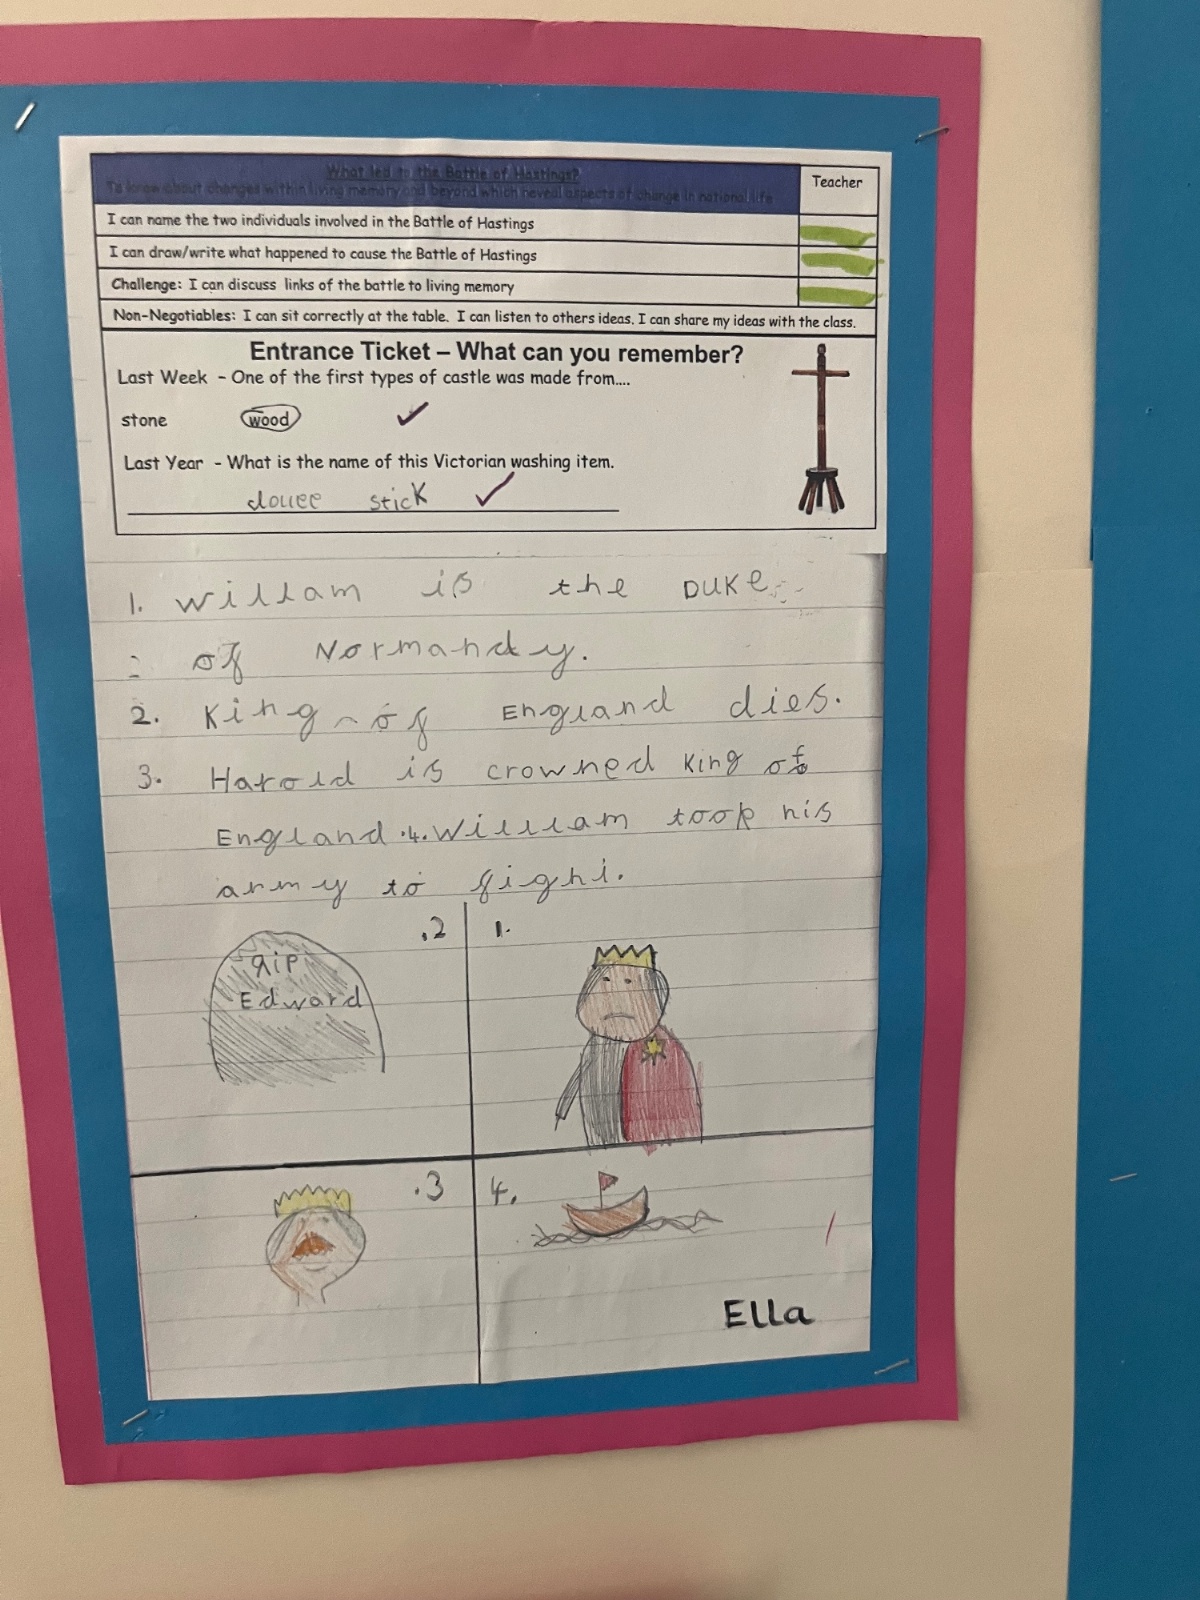 What led to the Battle of Hastings?
To know about changes within living memory and beyond which reveal aspects of change in national life
Teacher
I can name the two individuals involved in the Battle of Hastings
I can draw/write what happened to cause the Battle of Hastings
Challenge: I can discuss links of the battle to living memory
Non-Negotiables: I can sit correctly at the table. I can listen to others ideas. I can share my ideas with the class.
Entrance Ticket – What can you remember?
Last Week - One of the first types of castle was made from....
stone wood
Last Year - What is the name of this Victorian washing item.
stick
1. William is the DUKe
of Normandy.
2. King of England dies.
3. Harold is crowned King of
England .4. William took his
army to fight.
.2 1.
RIP
Edward
.3 4.
Ella